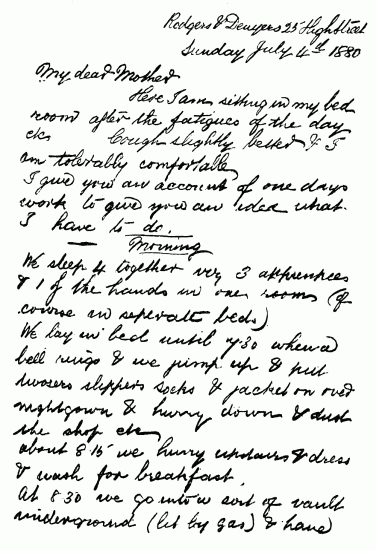 Rodgers & Denyers 25 High Street
Sunday July 4th 1880
My dear Mother
Here I am sitting in my bed
room after the fatigues of the day
etc Cough slightly better & I
am tolerably comfortable
I give you an account of one days
work to give you an idea what
I have to do.
Morning
We sleep 4 together viz 3 apprentices
& 1 of the hands in one room (of
course in seperate beds)
We lay in bed until 7.30 when a
bell rings & we jump up & put
trousers slippers socks & jacket on over
nightgown & hurry down & dust
the shop etc
about 8.15 we hurry upstairs & dress
& wash for breakfast.
At 8.30 we go into a sort of vault
underground (lit by gas) & have